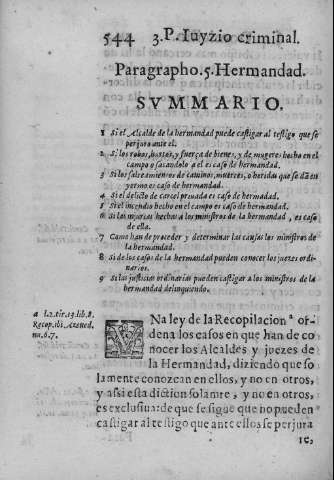 544 3.P. Iuyzio criminal.
Paragrapho.5. Hermandad.
SVMMARIO.
1 Si el Alcalde de la hermandad puede castigar al testigo que se
perjura ante el.
2 Si los robos, hurtos, y fuerça de bienes, y de mugeres hecho en el
campo o sacandolo a el es caso de hermandad.
3 Si los salteamientos de caminos, muertes, o heridas que se dã en
yermo es caso de hermandad.
4 Si el delicto de carcel priuada es caso de hermãdad.
5 Si el incendio hecho en el campo es caso de hermãdad.
6 Si las injurias hechas a los ministros de la hermandad, es caso
de ella.
7 Como han de proceder y determinar las causas los ministros de
la hermandad.
8 Si de los casos de la hermandad pueden conocer los juezes ordi-
narios.
9 Si las justicias ordinarias pueden castigar a los ministros de la
hermandad delinquiendo.
a l.2.tit.13.lib.8.
Recop. ibi Azeued.
nu.6.7.
VNa ley de la Recopilacion a or-
dena los casos en que han de co
nocer los Alcaldes y juezes de
la Hermandad, diziendo que so
lamente conozcan en ellos, y no en otros,
y assi esta diction solamẽte, y no en otros,
es exclusiua: de que se sigue que no pueden
castigar al testigo que ante ellos se perjura
re,